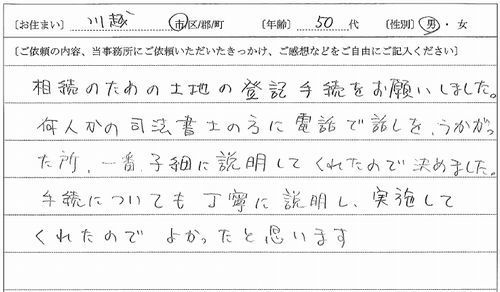 [お住まい] 川越 市/区/郡/町 [年齢] 50 代 [性別] 男・女
[ご依頼の内容、当事務所にご依頼いただいたきっかけ、ご感想などをご自由にご記入ください]
相続のための土地の登記手続をお願いしました。
何人かの司法書士の方に電話で話しを、うかがっ
た所、一番、子細に説明してくれたので決めました。
手続についても丁寧に説明し、実施して
くれたので よかったと思います